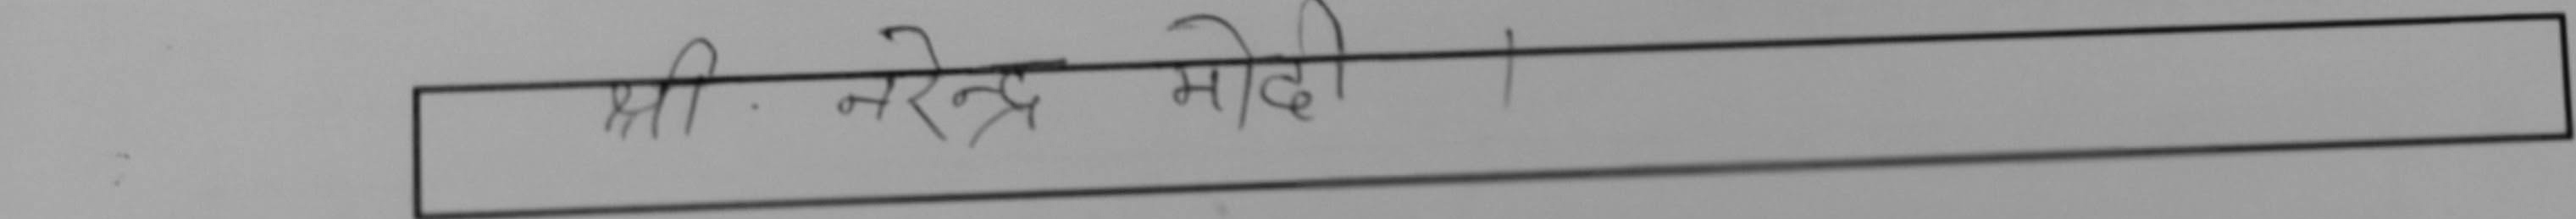 श्री. नरेन्द्र मोदी ।